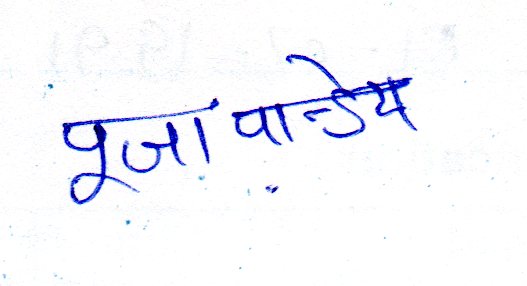 पूजा पान्डेय